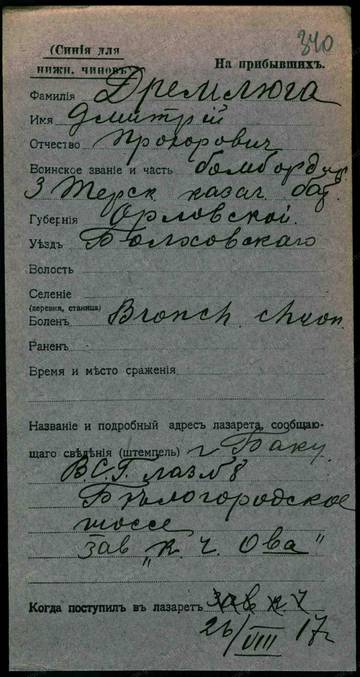 340
(Синія для
нижн. чиновъ)
На прибывшихъ.
Фамилія Дремлюга
Имя Дмитрій
Отчество Прохорович
Воинское званіе и часть бомбордир
3 Терск казач. бат.
Губернія Орловской.
Уѣздъ Болховскаго
Волость
Селеніе
(деревня, станица)
Боленъ Bronch. chron.
Раненъ
Время и мѣсто сраженія
Названіе и подробный адресъ лазарета, сообщаю-
щаго свѣдѣнія (штемпель) г. Баку
В.С.Г. лаз № 8
Бѣлогородское
шоссе
зав "К. Ч. О-ва"
Когда поступилъ въ лазаретъ зав к ч
26/VIII 17 г